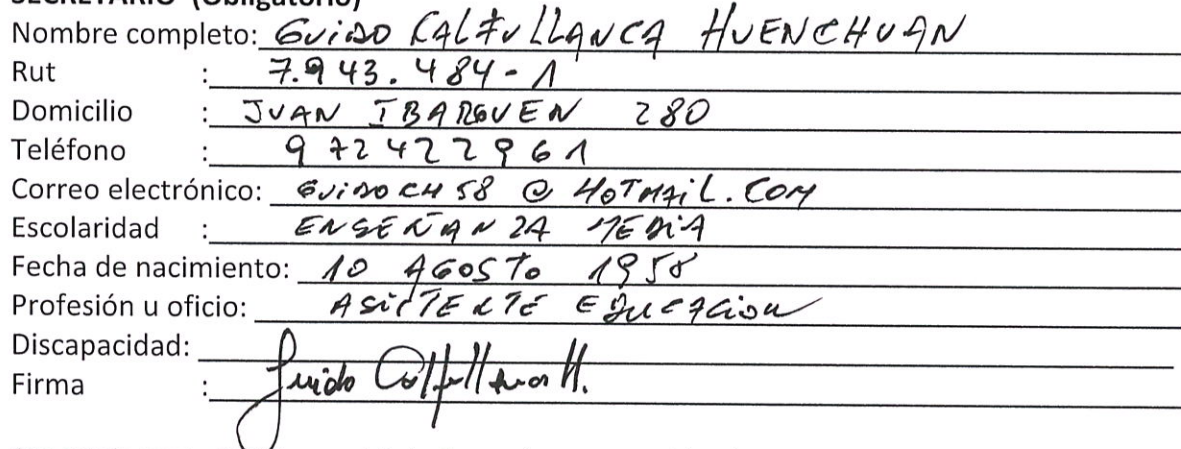 SECRETARIO (Obligatorio)
Nombre completo: GUIDO CALFULLANCA HUENCHUAN
Rut : 7.943.484-1
Domicilio : JUAN IBARGUEN 280
Teléfono : 972422961
Correo electrónico: GUIDOCH58@HOTMAIL.COM
Escolaridad : ENSEÑANZA MEDIA
Fecha de nacimiento: 10 AGOSTO 1958
Profesión u oficio: ASISTENTE EDUCACION
Discapacidad:
Firma : Guido Calfullanca H.